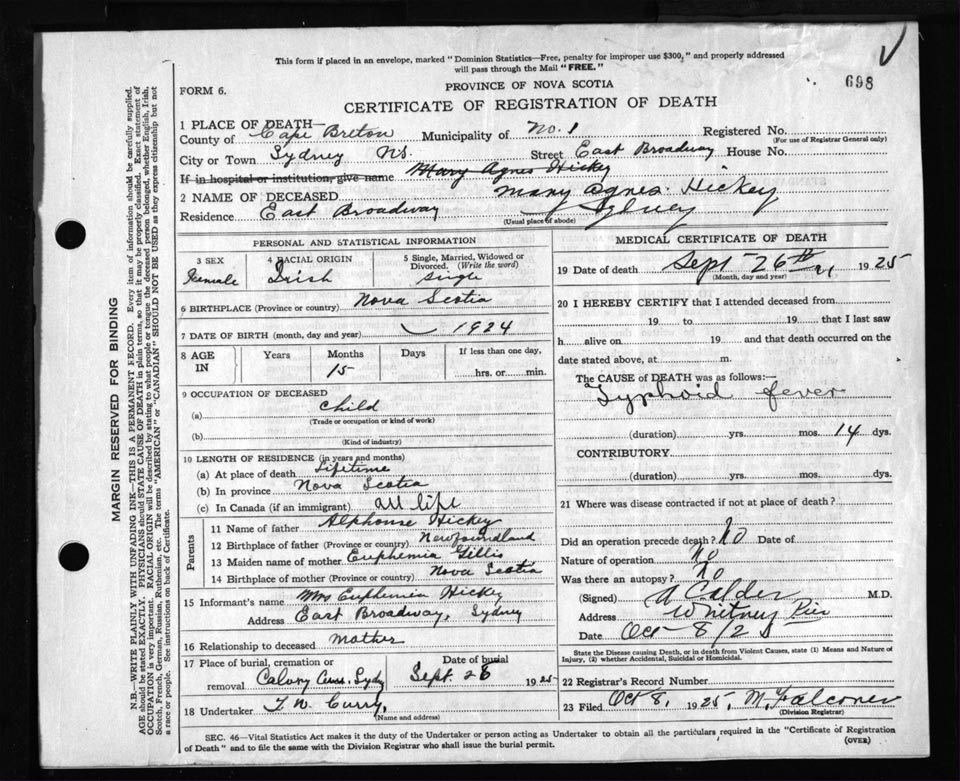 This form if placed in an envelope, marked "Dominion Statistics—Free, penalty for improper use $300," and properly addressed
will pass through the Mail "FREE."
698
PROVINCE OF NOVA SCOTIA
FORM 6.
CERTIFICATE OF REGISTRATION OF DEATH
1 PLACE OF DEATH—
County of Cape Breton Municipality of No. 1 Registered No.
(For use of Registrar General only)
City or Town Sydney NS. Street East Broadway House No.
If in hospital or institution, give name Mary Agnes Hickey
2 NAME OF DECEASED Mary Agnes Hickey
Residence East Broadway Sydney
(Usual place of abode)
PERSONAL AND STATISTICAL INFORMATION
3 SEX 4 RACIAL ORIGIN 5 Single, Married, Widowed or
Divorced. (Write the word)
Female Irish Single
6 BIRTHPLACE (Province or country) Nova Scotia
7 DATE OF BIRTH (month, day and year) 1924
8 AGE IN Years Months Days If less than one day,
15 hrs. or min.
9 OCCUPATION OF DECEASED
(a) child
(Trade or occupation or kind of work)
(b)
(Kind of industry)
10 LENGTH OF RESIDENCE (in years and months)
(a) At place of death Lifetime
(b) In province Nova Scotia
(c) In Canada (if an immigrant) all life
Parents
11 Name of father Alphonse Hickey
12 Birthplace of father (Province or country) Newfoundland
13 Maiden name of mother Euphemia Gillis
14 Birthplace of mother (Province or country) Nova Scotia
15 Informant's name Mrs Euphemia Hickey
Address East Broadway, Sydney
16 Relationship to deceased Mother
17 Place of burial, cremation or Date of burial
removal Calvary Cem. Sydy Sept. 28 1925
18 Undertaker T. W. Curry,
(Name and address)
MEDICAL CERTIFICATE OF DEATH
19 Date of death Sept 26th 1925
(Month, day and year)
20 I HEREBY CERTIFY that I attended deceased from
19 to 19 that I last saw
h alive on 19 and that death occurred on the
date stated above, at m.
The CAUSE OF DEATH was as follows:—
Typhoid fever
(duration) yrs. mos. 14 dys.
CONTRIBUTORY
(duration) yrs. mos. dys.
21 Where was disease contracted if not at place of death?
Did an operation precede death? No Date of
Nature of operation No
Was there an autopsy? No
(Signed) A Calder M.D.
Address Whitney Pier
Date Oct 8/25
State the Disease causing Death, or in death from Violent Causes, state (1) Means and Nature of
Injury, (2) whether Accidental, Suicidal or Homicidal.
22 Registrar's Record Number
23 Filed Oct 8, 1925, M. Falconer
(Division Registrar)
SEC. 46—Vital Statistics Act makes it the duty of the Undertaker or person acting as Undertaker to obtain all the particulars required in the "Certificate of Registration
of Death" and to file the same with the Division Registrar who shall issue the burial permit.
(OVER)
MARGIN RESERVED FOR BINDING
N.B.—WRITE PLAINLY WITH UNFADING INK—THIS IS A PERMANENT RECORD. Every item of information should be carefully supplied.
AGE should be stated EXACTLY. PHYSICIANS should STATE CAUSE OF DEATH in plain terms, so that it may be properly classified. Exact statement of
OCCUPATION is very important. RACIAL ORIGIN will be described by stating to what people or tongue the deceased person belonged, whether English, Irish,
Scotch, French, German, Russian, Ruthenian, etc. The terms "AMERICAN" or "CANADIAN" SHOULD NOT BE USED as they express citizenship but not
a race or people. See instructions on back of Certificate.